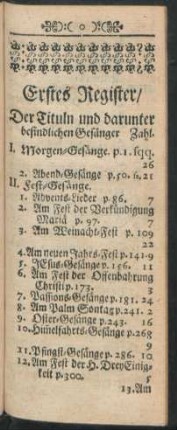 Erstes Register/
Der Tituln und darunter
befindlichen Gesänger Zahl.
I. Morgen-Gesänge. p. 1. seqq.
26
2. Abend-Gesänge p. 50. s. 21
II. Fest-Gesänge.
1. Advents-Lieder p. 86. 7
2. Am Fest der Verkündigung
Mariä p. 97. 7
3. Am Weinacht-Fest p. 109
22
4. Am neuen Jahrs-Fest p. 141-9
5. JEsus-Gesänge p. 156. 11
6. Am Fest der Offenbahrung
Christi p. 173. 3
7. Passions-Gesänge p. 181. 24
8. Am Palm Sontag p. 241. 2
9. Oster-Gesänge p. 243. 16
10. Himelfahrts-Gesänge p. 268
9
11. Pfingst-Gesänge p. 286. 10
12. Am Fest der H. Drey Einig-
keit p. 300. 5
13. Am